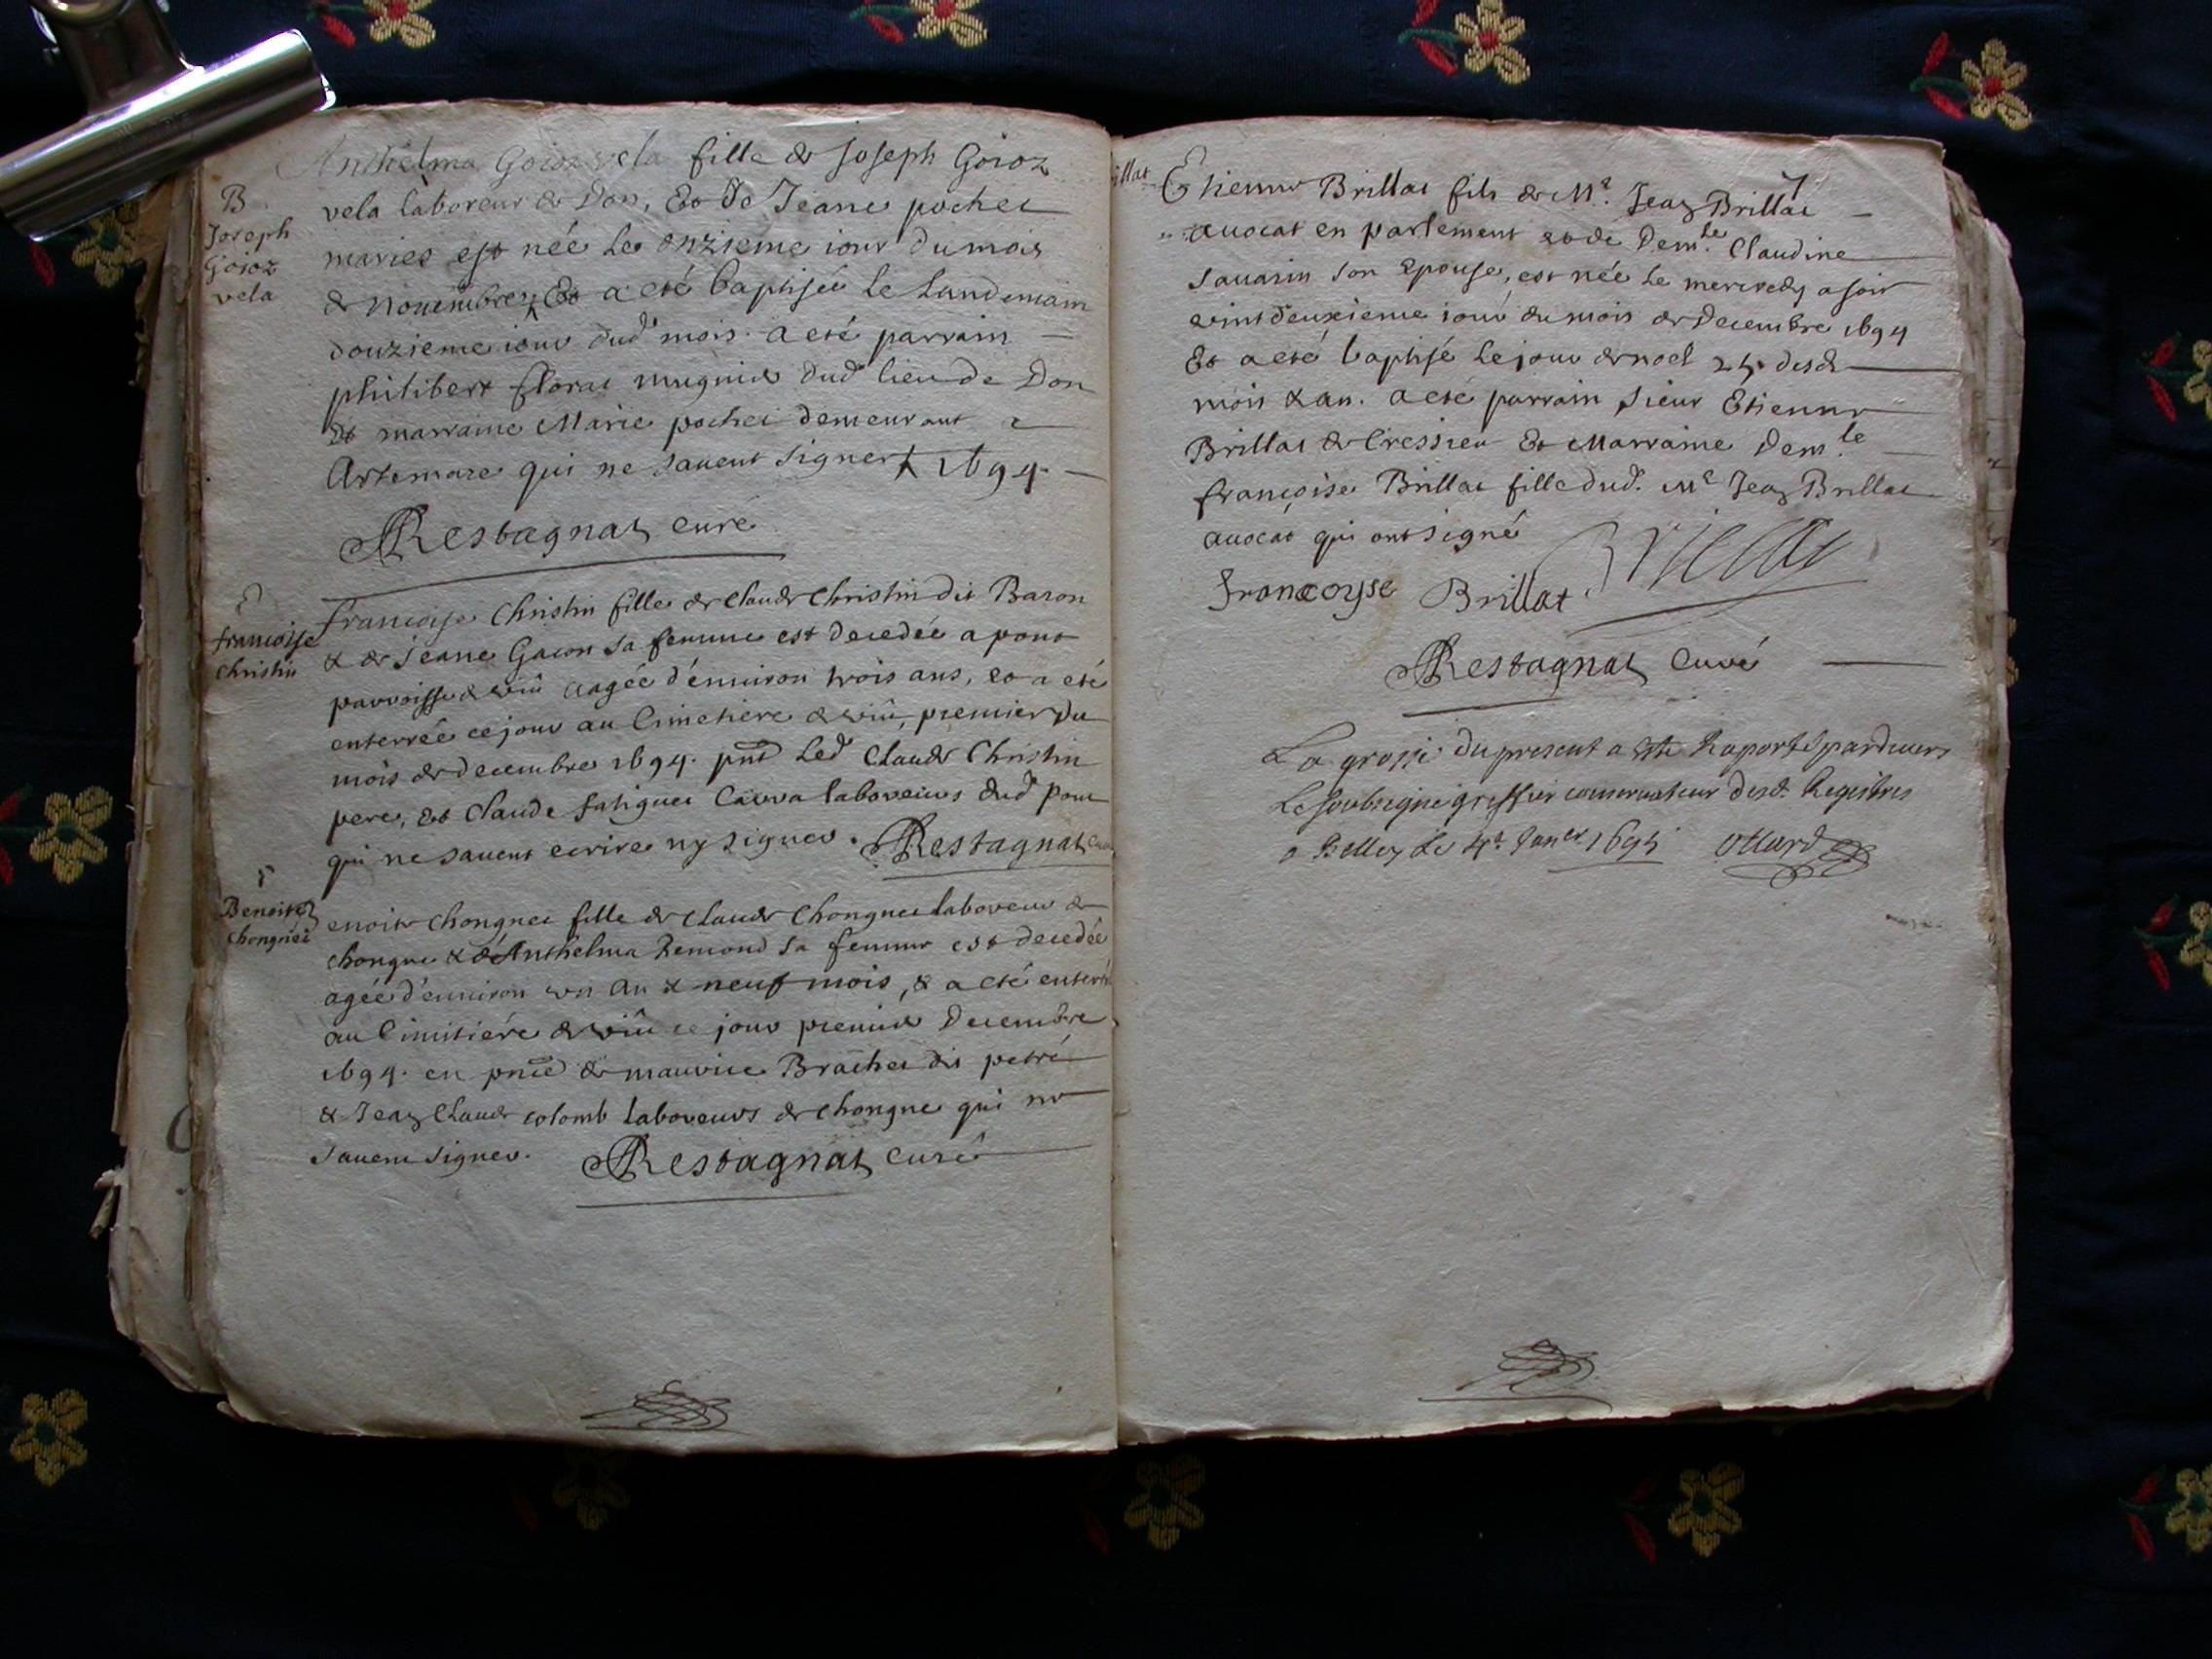 Anthelma Goioz vela fille de Joseph Goioz
B
Joseph
Goioz
vela
vela laboreur de Don, Et de Jeane pochet
mariés est née le onzieme iour du mois
de Nouembre, Et a eté baptisée le lundemain
douzieme iour dud mois. a eté parrain
philibert floret mugnier dud lieu de Don
Et marraine Marie pochet demeurant a
Artemare qui ne sauent signer 1694.
Restagnat curé
francoise
christin
francoise Christin fille de Claude Christin dit Baron
& de Jeane Gacon sa femme est decedée a pont
parroisse de viû aagée d'enuiron trois ans, et a eté
enterrée ce jour au Cimetiere de viû, premier du
mois de decembre 1694. pnt led Claude Christin
pere, Et Claude fatiguet laboreurs dud pont
qui ne sauent ecrire ny signer. Restagnat curé
Benoite
chongnet
Benoite chongnet fille de Claude Chongnet laboreur de
chongne & d'Anthelma Remond sa femme est decedée
agée d'enuiron vn an & neuf mois, & a eté enterré
au Cimitiére de viû ce jour premier Decembre
1694. en pnce de maurice Brachet dit petré
& Jean Claude colomb laboreurs de chongne qui ne
sauent signer. Restagnat curé
7
illat
Etienne Brillat fils de Me. Jean Brillat
auocat en parlement et de Demle Claudine
Sauarin son Epouse, est née le mercredy a soir
vint deuxieme iour du mois de Decembre 1694
Et a eté baptisé le jour de noel 25 desd
mois & an. a eté parrain sieur Etienne
Brillat de Cressieu Et Marraine Demle
françoise Brillat fille dud. Me Jean Brillat
auocat qui ont signé
Brillat
francoyse Brillat
Restagnat Curé
La grosse du present a esté Raportés parduers
Le soubsigne greffier conseruateur desd. Registres
a Belley le 4e Janer 1695 Ollard